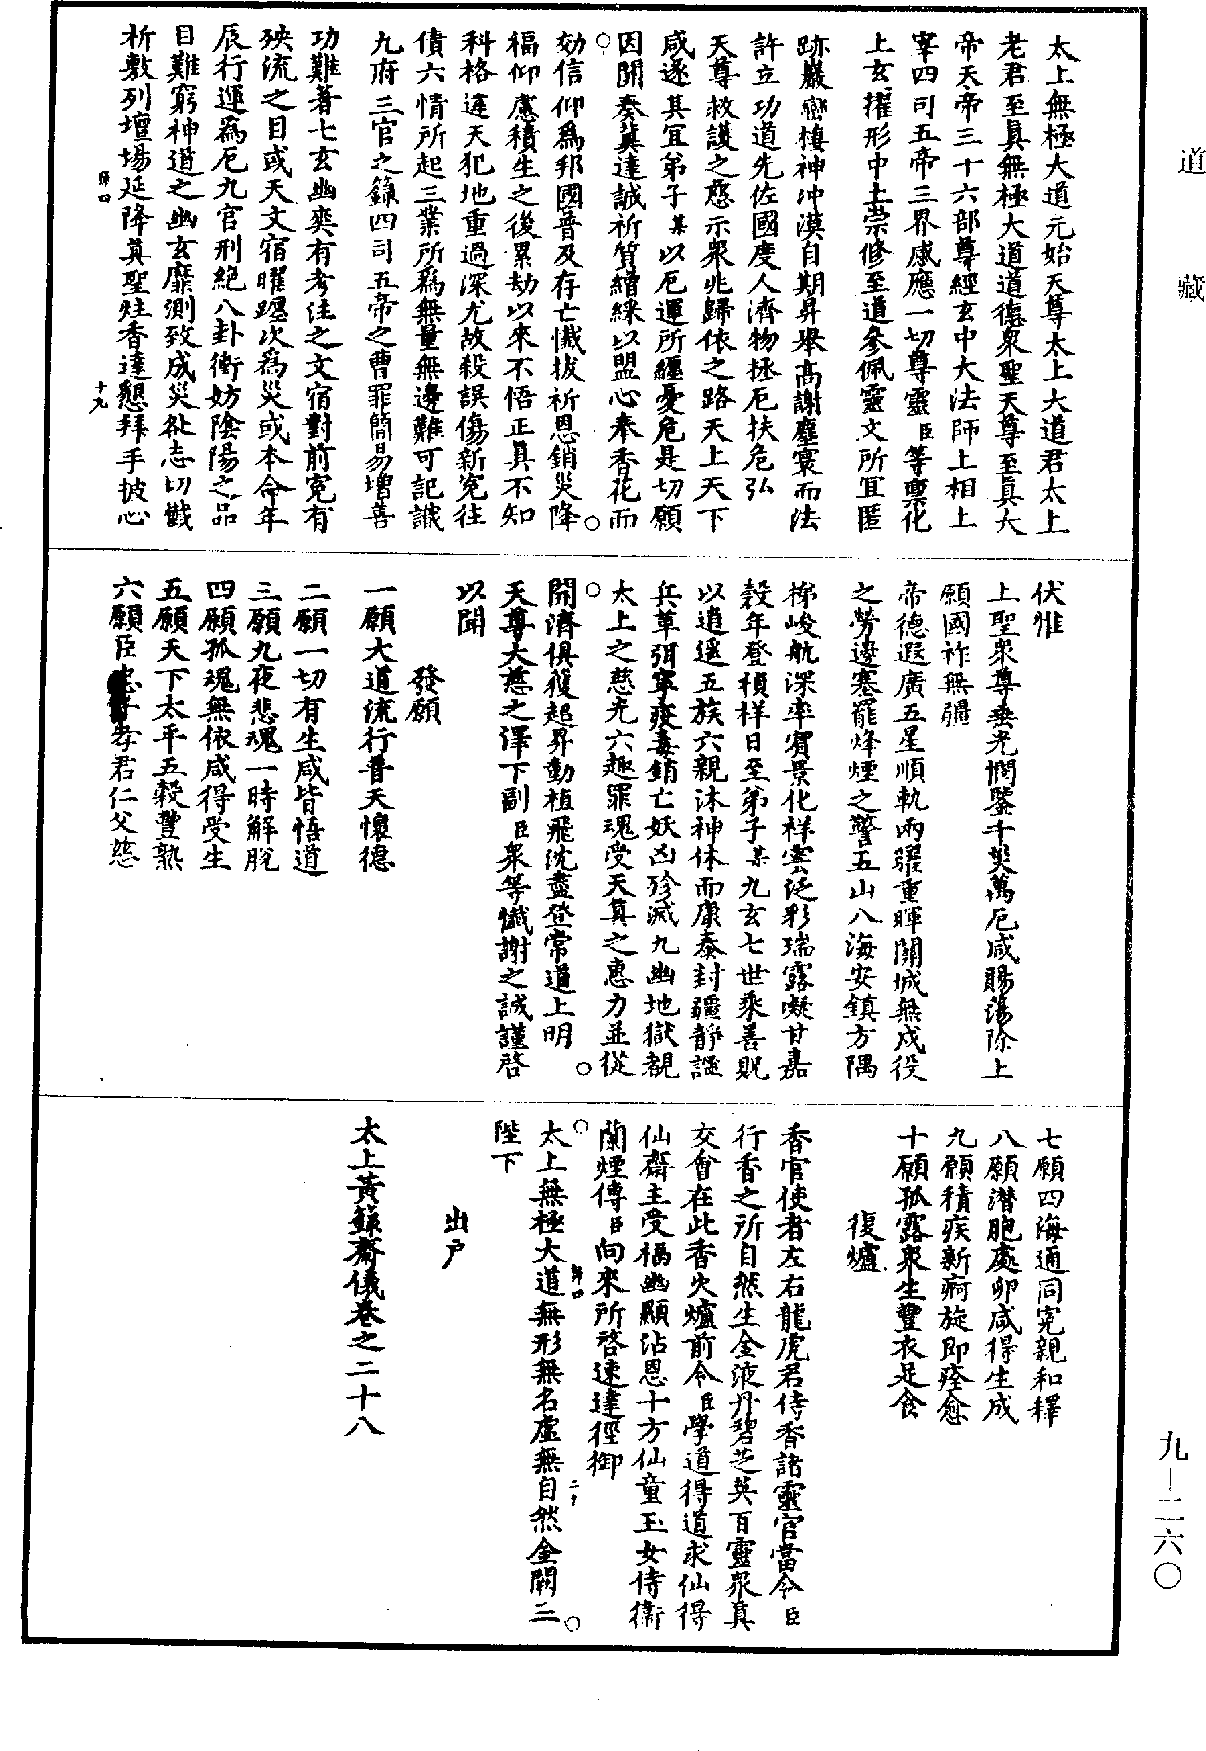 道藏
太上無極大道元始天尊太上大道君太上
老君至真無極大道道德衆聖天尊至真大
帝天帝三十六部尊經玄中大法師上相上
宰四司五帝三界感應一切尊靈臣等稟化
上玄擢形中土崇修至道參佩靈文所宜匿
跡巖巒棲神沖漠自期昇舉高謝塵寰而法
許立功道先佐國度人濟物拯厄扶危弘
天尊救護之慈示衆兆歸依之路天上天下
咸遂其宜弟子某以厄運所纏憂危是切願
因開奏冀達誠祈質繒綵以盟心奉香花而
効信仰爲邦國普及存亡懺拔祈恩銷災降
福仰慮積生之後累劫以來不悟正真不知
科格違天犯地重過深尤故殺誤傷新冤往
債六情所起三業所爲無量無邊難可記誠
九府三官之錄四司五帝之曹罪簡易增善
功難著七玄幽爽有考住之文宿對前冤有
殃流之目或天文宿曜躔次爲災或本命年
辰行運爲厄九宮刑絕八卦衝妨陰陽之品
目難窮神道之幽玄靡測致成災咎志切懺
祈敷列壇場延降真聖炷香達懇拜手披心
十九
伏惟
上聖衆尊垂光憫鑒千災萬厄咸賜蕩除上
願國祚無疆
帝德遐廣五星順軌兩曜重暉關城無戍役
之勞邊塞罷烽煙之警五山八海安鎮方隅
梯峻航深率賓景化祥雲泛彩瑞露凝甘嘉
穀年登禎祥日至弟子某九玄七世乘善貺
以逍遥五族六親沐神休而康泰封疆靜謐
兵革弭寧疫毒銷亡妖凶殄滅九幽地獄覩
太上之慈光六趣罪魂受天真之惠力並從
開濟俱獲超昇動植飛沈盡登常道上明
天尊大慈之澤下副臣衆等懺謝之誠謹啓
以聞
發願
一願大道流行普天懷德
二願一切有生咸皆悟道
三願九夜悲魂一時解脫
四願孤魂無依咸得受生
五願天下太平五穀豐熟
六願臣忠子孝君仁父慈
七願四海通同冤親和釋
八願潛胞處卵咸得生成
九願積疾新痾旋即痊愈
十願孤露衆生豐衣足食
復爐
香官使者左右龍虎君侍香諸靈官當令臣
行香之所自然生金液丹碧芝英百靈衆真
交會在此香火爐前令臣學道得道求仙得
仙齋主受福幽顯沾恩十方仙童玉女侍衛
蘭煙傳臣向來所啓速達徑御
太上無極大道無形無名虛無自然金闕三
陛下
出戶
太上黃籙齋儀卷之二十八
九—二六〇